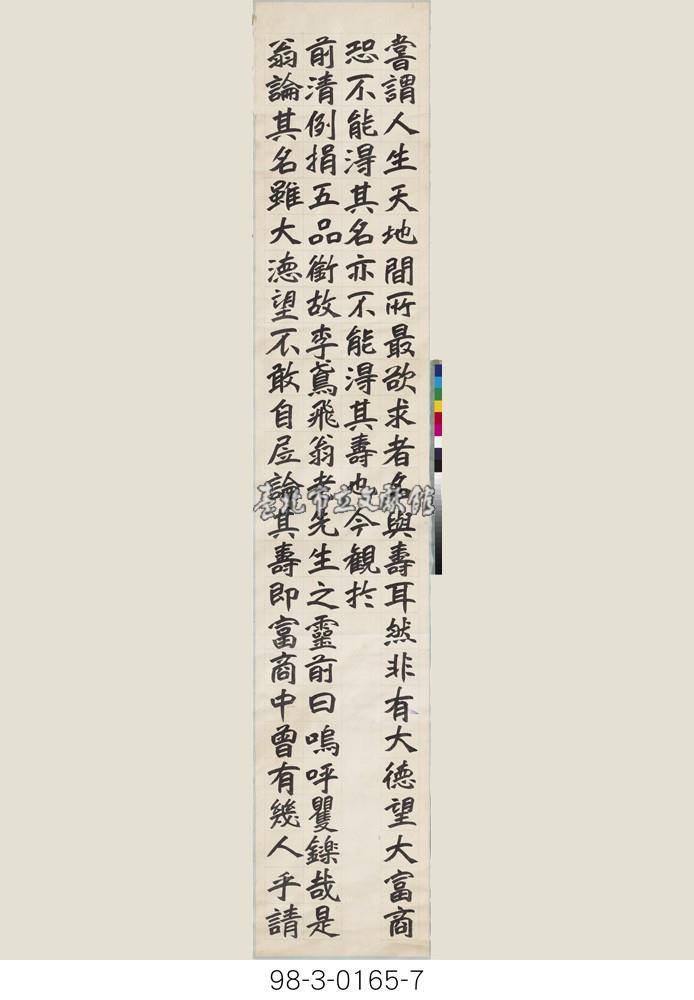 嘗謂人生天地間所最欲求者名與壽耳然非有大德望大富商
恐不能得其名亦不能得其壽也今觀於
前清例捐五品銜故李鳶飛翁老先生之靈前曰嗚呼矍鑠哉是
翁論其名雖大德望不敢自居論其壽即富商中曾有幾人乎請
臺北市立文獻館
98-3-0165-7